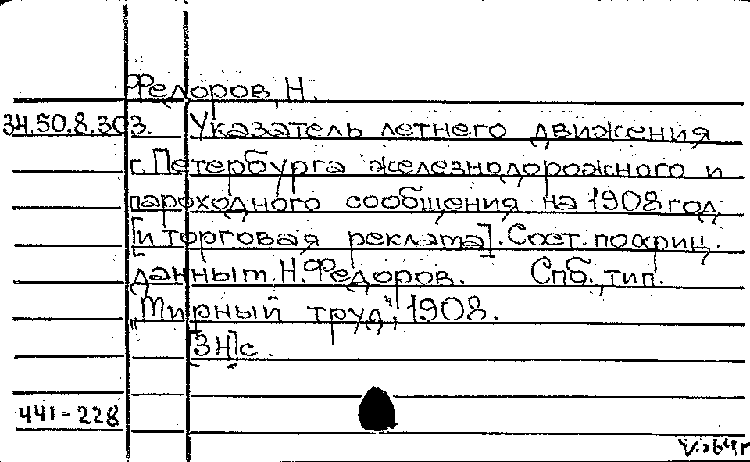 Федоров, Н.
34.50.8.303. Указатель летнего движения
г. Петербурга железнодорожного и
пароходного сообщения на 1908 год
[и торговая реклама]. Сост. по офиц.
данным Н. Федоров. Спб., тип.
„Мирный труд“, 1908.
[34]с.
441-228